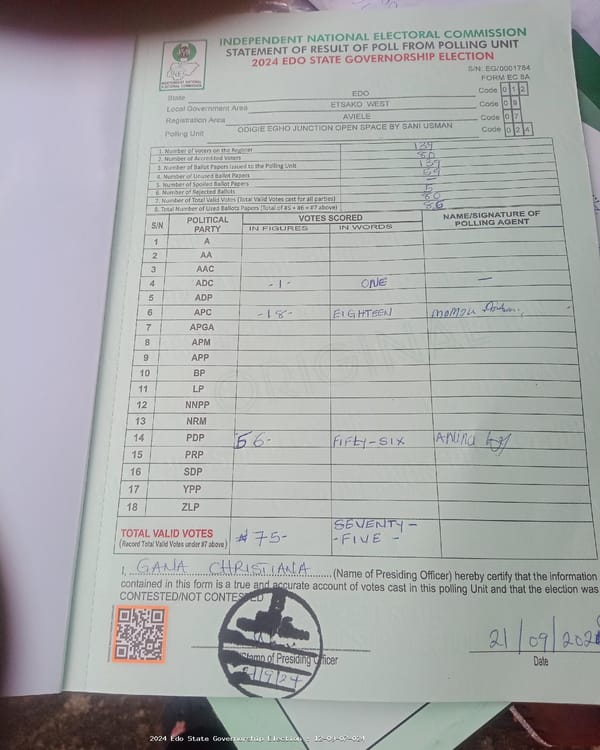 INDEPENDENT NATIONAL ELECTORAL COMMISSION
STATEMENT OF RESULT OF POLL FROM POLLING UNIT
2024 EDO STATE GOVERNORSHIP ELECTION
S/N: EG/0001784
FORM EC 8A
State EDO Code 0 1 2
Local Government Area ETSAKO WEST Code 0 9
Registration Area AVIELE Code 0 7
Polling Unit ODIGIE EGHO JUNCTION OPEN SPACE BY SANI USMAN Code 0 2 4
1. Number of Voters on the Register 139
2. Number of Accredited Voters 80
3. Number of Ballot Papers Issued to the Polling Unit 139
4. Number of Unused Ballot Papers 59
5. Number of Spoiled Ballot Papers
6. Number of Rejected Ballots 5
7. Number of Total Valid Votes (Total Valid Votes cast for all parties) 80
8. Total Number of Used Ballots Papers (Total of #5 + #6 + #7 above) 86
S/N POLITICAL PARTY VOTES SCORED NAME/SIGNATURE OF POLLING AGENT
IN FIGURES IN WORDS
1 A
2 AA
3 AAC
4 ADC -1- ONE –
5 ADP
6 APC -18- EIGHTEEN MOMOH
7 APGA
8 APM
9 APP
10 BP
11 LP
12 NNPP
13 NRM
14 PDP 56- FIFTY-SIX
15 PRP
16 SDP
17 YPP
18 ZLP
ORIGINAL
TOTAL VALID VOTES 75- SEVENTY-
(Record Total Valid Votes under #7 above) -FIVE-
I, GANA CHRISTIANA (Name of Presiding Officer) hereby certify that the information
contained in this form is a true and accurate account of votes cast in this polling Unit and that the election was
CONTESTED/NOT CONTESTED
Stamp of Presiding Officer
21/9/24
21/09/2024
Date
2024 Edo State Governorship Election - 12-09-07-024